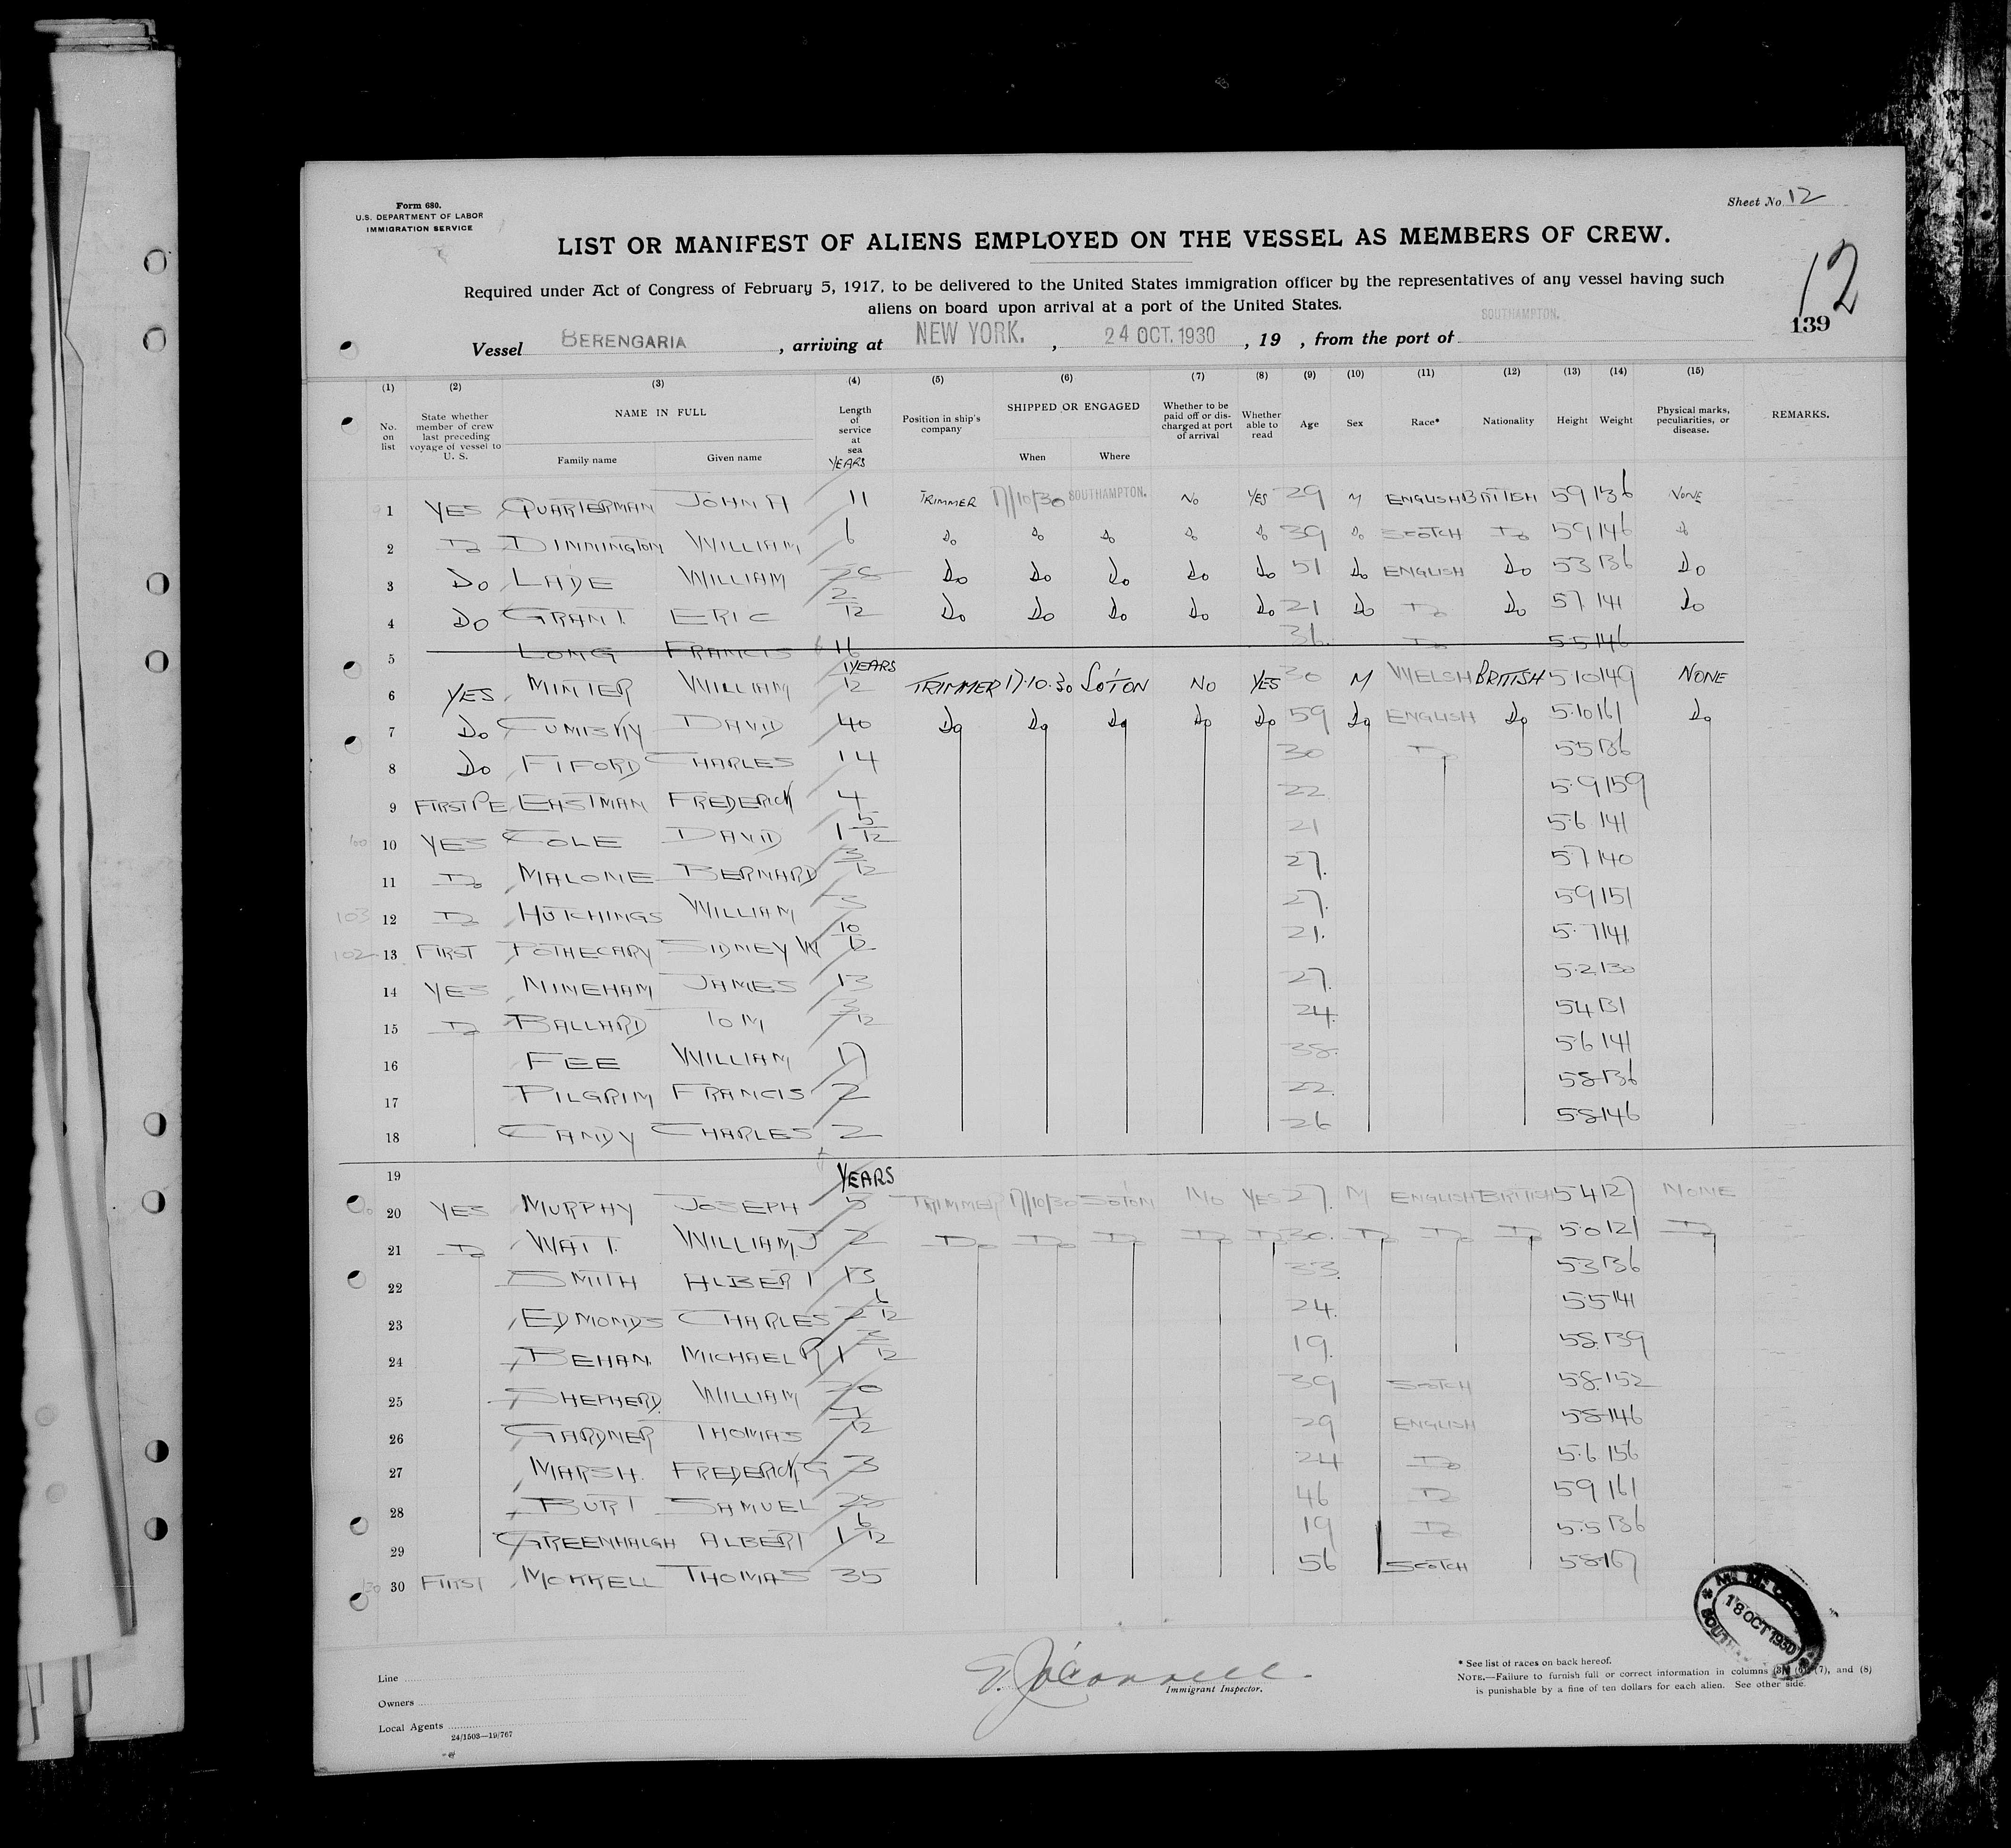 Form 680.
U.S. DEPARTMENT OF LABOR
IMMIGRATION SERVICE
Sheet No. 12
LIST OR MANIFEST OF ALIENS EMPLOYED ON THE VESSEL AS MEMBERS OF CREW.
Required under Act of Congress of February 5, 1917, to be delivered to the United States immigration officer by the representatives of any vessel having such
aliens on board upon arrival at a port of the United States.
12
139
Vessel BERENGARIA, arriving at NEW YORK., 24 OCT. 1930, 19 , from the port of SOUTHAMPTON.
(1) (2) (3) (4) (5) (6) (7) (8) (9) (10) (11) (12) (13) (14) (15)
No. on list State whether member of crew last preceding voyage of vessel to U. S. NAME IN FULL Family name Given name Length of service at sea YEARS Position in ship's company SHIPPED OR ENGAGED When Where Whether to be paid off or discharged at port of arrival Whether able to read Age Sex Race* Nationality Height Weight Physical marks, peculiarities, or disease. REMARKS.
1 YES QUARTERMAN JOHN A 11 TRIMMER 17/10/30 SOUTHAMPTON. NO YES 29 M ENGLISH BRITISH 59 136 NONE
2 Do DINNINGTON WILLIAM 6 Do Do Do Do Do 39 Do SCOTCH Do 59 146 Do
3 Do LADE WILLIAM Do Do Do Do Do 51 Do ENGLISH Do 53 136 Do
4 Do GRANT. ERIC 2/12 Do Do Do Do Do 21 Do Do Do 57 141 Do
5 LONG FRANCIS 16 36. Do 55 146
6 YES MINTER WILLIAM YEARS 12 TRIMMER 17.10.30 SO'TON NO YES 30 M WELSH BRITISH 5.10 149 NONE
7 Do CUMISKY DAVID 40 Do Do Do Do Do 59 Do ENGLISH Do 5.10 161 Do
8 Do FIFORD CHARLES 14 30 Do 55 136
9 EASTMAN FREDERICK 4 22 5.9 159
10 YES COLE DAVID 1 5/12 21 5.6 141
11 Do MALONE BERNARD 3/12 27. 57 140
103 12 Do HUTCHINGS WILLIAM 27. 59 151
102 13 FIRST POTHECARY SIDNEY W 10/12 21. 5.7 141
14 YES MINEHAM JAMES 13 27. 5.2 130
15 Do BALLARD TOM 3/12 24. 54 131
16 FEE WILLIAM 17 38. 5.6 141
17 PILGRIM FRANCIS 2 22. 58 136
18 CANDY CHARLES 2 26 5.8 146
19 YEARS
20 YES MURPHY JOSEPH 5 TRIMMER 17/10/30 SO'TON NO YES 27. M ENGLISH BRITISH 54 127 NONE
21 Do WATT. WILLIAM.J 2 Do Do Do Do Do 30. Do Do Do 5.0 121 Do
22 SMITH ALBERT 13 33. 53 136
23 EDMONDS CHARLES 2 6/12 24. 5.5 141
24 BEHAN. MICHAEL P 1 5/12 19. 58. 139
25 SHEPHERD. WILLIAM 20 39 SCOTCH 58. 152
26 GARDNER THOMAS 7/12 29 ENGLISH 58 146
27 MARSH. FREDERICK G 3 24 Do 5.6 156
28 BURT SAMUEL 46 Do 59 161
29 GREENHALGH ALBERT 1 6/12 19 Do 5.5 136
30 FIRST MORRELL THOMAS 35 56 SCOTCH 58 167
18 OCT 1930
Line
Owners
Local Agents
24/1503—19/767
Immigrant Inspector.
* See list of races on back hereof.
NOTE.—Failure to furnish full or correct information in columns (7), and (8)
is punishable by a fine of ten dollars for each alien. See other side.